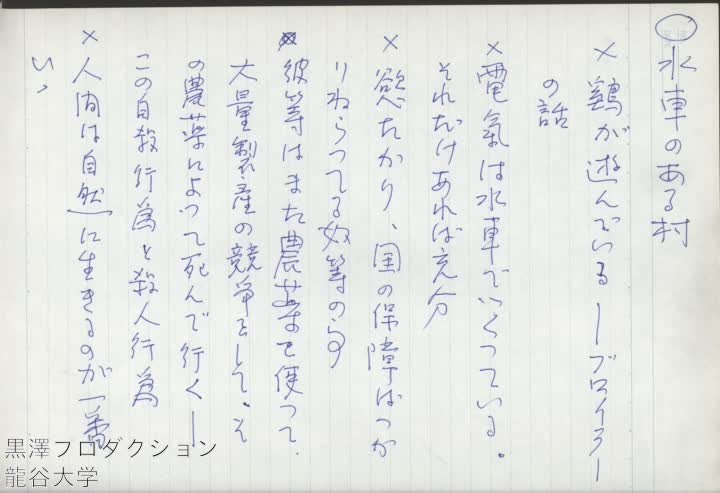 水車のある村
×鶏が遊んでいる―ブロイラー
の話
×電氣は水車でつくつている。
それだけあれば充分
×慾たかり、国の保障ばつか
りねらつてる奴等の
彼等はまた農薬を使つて、
大量製産の競争をして、そ
の農薬によつて死んで行く―
この自殺行為と殺人行為
×人间は自然に生きるのが一番
いゝ
黒澤プロダクション
龍谷大学